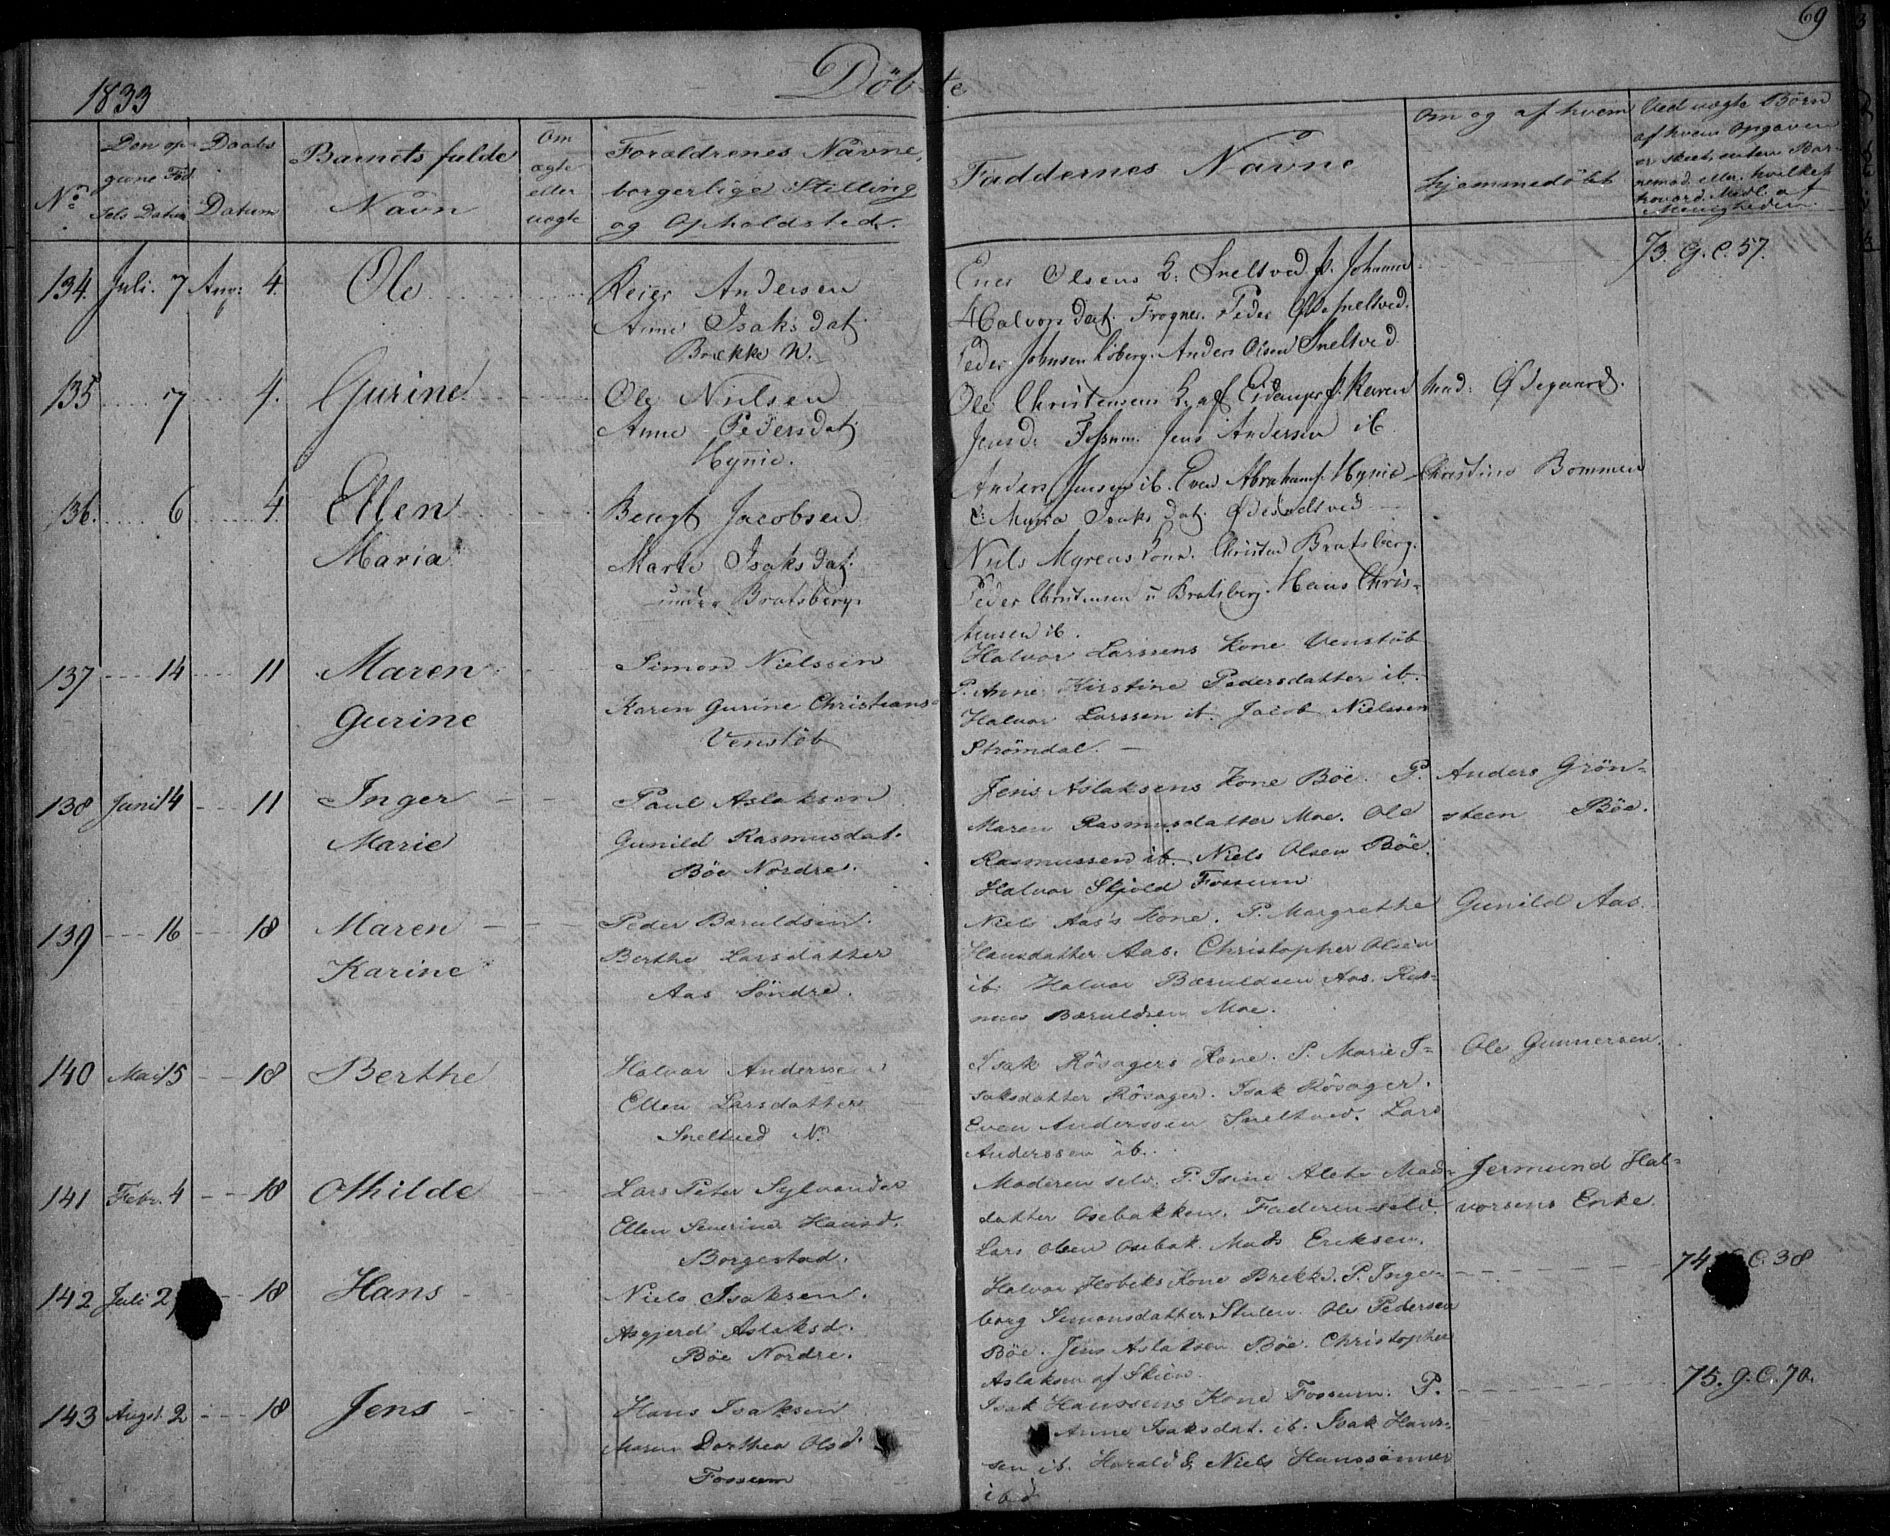 69
1833
Döbte
No
Den op-
givne Föd-
sels Datum
Daabs
Datum
Barnets fulde
Navn
Om
ægte
eller
uægte
Forældrenes Navne,
borgerlige Stilling
og Opholdsted.
Faddernes Navne
Om og af hvem
hjemmedöbt
Ved uægte Börn
af hvem Opgaven
er skeet, enten Bar-
134. Juli. 7 Aug: 4. Ole
Andersen
Anne Isaksdat.
Brække N.
Olsens K: Sneltved P. Johanne
Halvorsdat. Frogner. Peder Sneltved.
Peder Johnsen. Anders Olsen Sneltved
73. g. C. 57.
135 7 4. Gurine
Ole Nielsen
Anne Pedersdat.
Hynie.
Ole Christensens K. af P. Karen
Jensd. Fossum. Jens Andersen ib
Mad: Ödegaard.
136. 6 4. Ellen
Maria
Bengt Jacobsen
Marte Isaksdat.
under Bratsberg.
Anders Jensen ib. Even Abrahams. Hynie
Maria Isaksdat.
Niels Myrens Kone. Christen Bratsberg.
Peder Christensen u Bratsberg. Hans Chris-
tensen ib.
Christine Bommen
137 14 11 Maren
Gurine
Simon Nielssen
Karen Gurine Christians-
Venstöb
Halvor Larssens Kone Venstöb
P. Anne Kirstine Pedersdatter ib.
Halvor Larssen ib. Jacob Nielssen
Strömdal.
138 Juni 14 11 Inger
Marie
Paul Aslaksen
Gunild Rasmusdat.
Böe Nordre.
Jens Aslaksens Kone Böe. P.
Maren Rasmusdatter Moe. Ole
Rasmussen ib. Niels Olsen Böe.
Halvor Skjold Fossum
Anders Grön-
steen Böe.
139 16 18 Maren
Karine
Peder Baruldsen.
Berthe Larsdatter
Aas Söndre.
Niels Aas's Kone. P. Margrethe
Hansdatter Aas. Christopher Olsen
ib. Halvor Bæruldsen Aas. Ras-
mus Bæruldsen Moe.
Gunild Aas.
140 Mai 15 18 Berthe
Halvor Anderssen
Ellen Larsdatter
Sneltved N.
Isak Rösagers Kone. P. Marie I-
saksdatter Rösager. Isak Rösager.
Even Anderssen Sneltved. Lars
Anderssen ib.
Ole Gunnersen.
141 Febr. 4 18 Othilde
Lars Peter Sylvander
Ellen Severine Hansd.
Borgestad.
Moderen selv. P. Isine Alete Mads-
datter Osebakken. Faderen selv.
Lars Olsen Osebak. Mads Eriksen.
Jermund Hal-
vorsens Enke.
142 Juli 2 18 Hans
Niels Isaksen.
Asgjerd Aslaksd.
Böe Nordre.
Halvor Hobeks Kone Brekke. P. Inge-
borg Simonsdatter Stulen. Ole Pedersen
Böe. Jens Aslaksen Böe. Christopher
Aslaksen af Skien.
74. C. 38
143 Augst. 2 18 Jens
Hans Isaksen
Maren Dorthea Olsd.
Fossum
Isak Hanssens Kone Fossum. P.
Anne Isaksdat. ib. Isak Hans-
sen ib. Harald & Niels Hanssönner
ibd
75. g. C. 70.